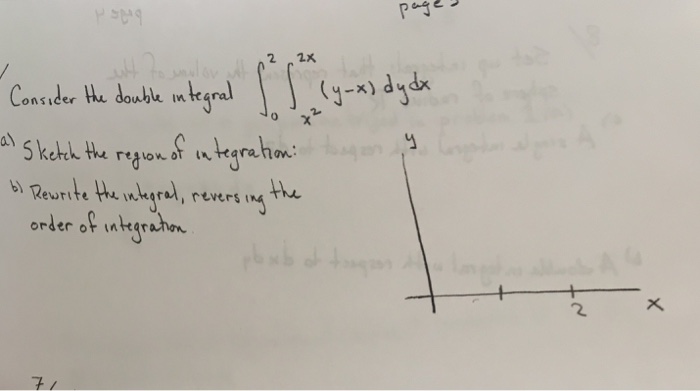 page
Consider the double integral ∫₀² ∫ₓ²^2x (y-x) dy dx
a) Sketch the region of integration:
b) Rewrite the integral, reversing the
order of integration.
y
2
x
7/